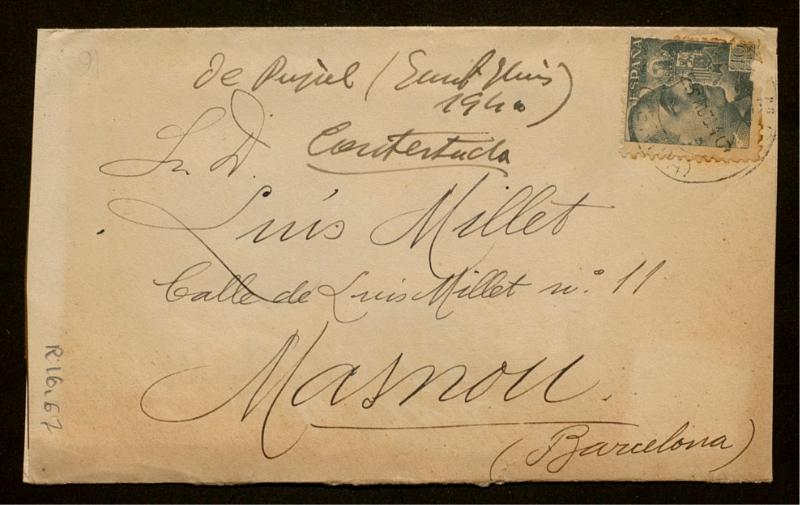 de Pujol (Sant Lluís)
1940
Contestada
Sr. D.
Luís Millet
Calle de Luis Millet nº 11
Masnou.
(Barcelona)
R.16,67
ESPAÑA